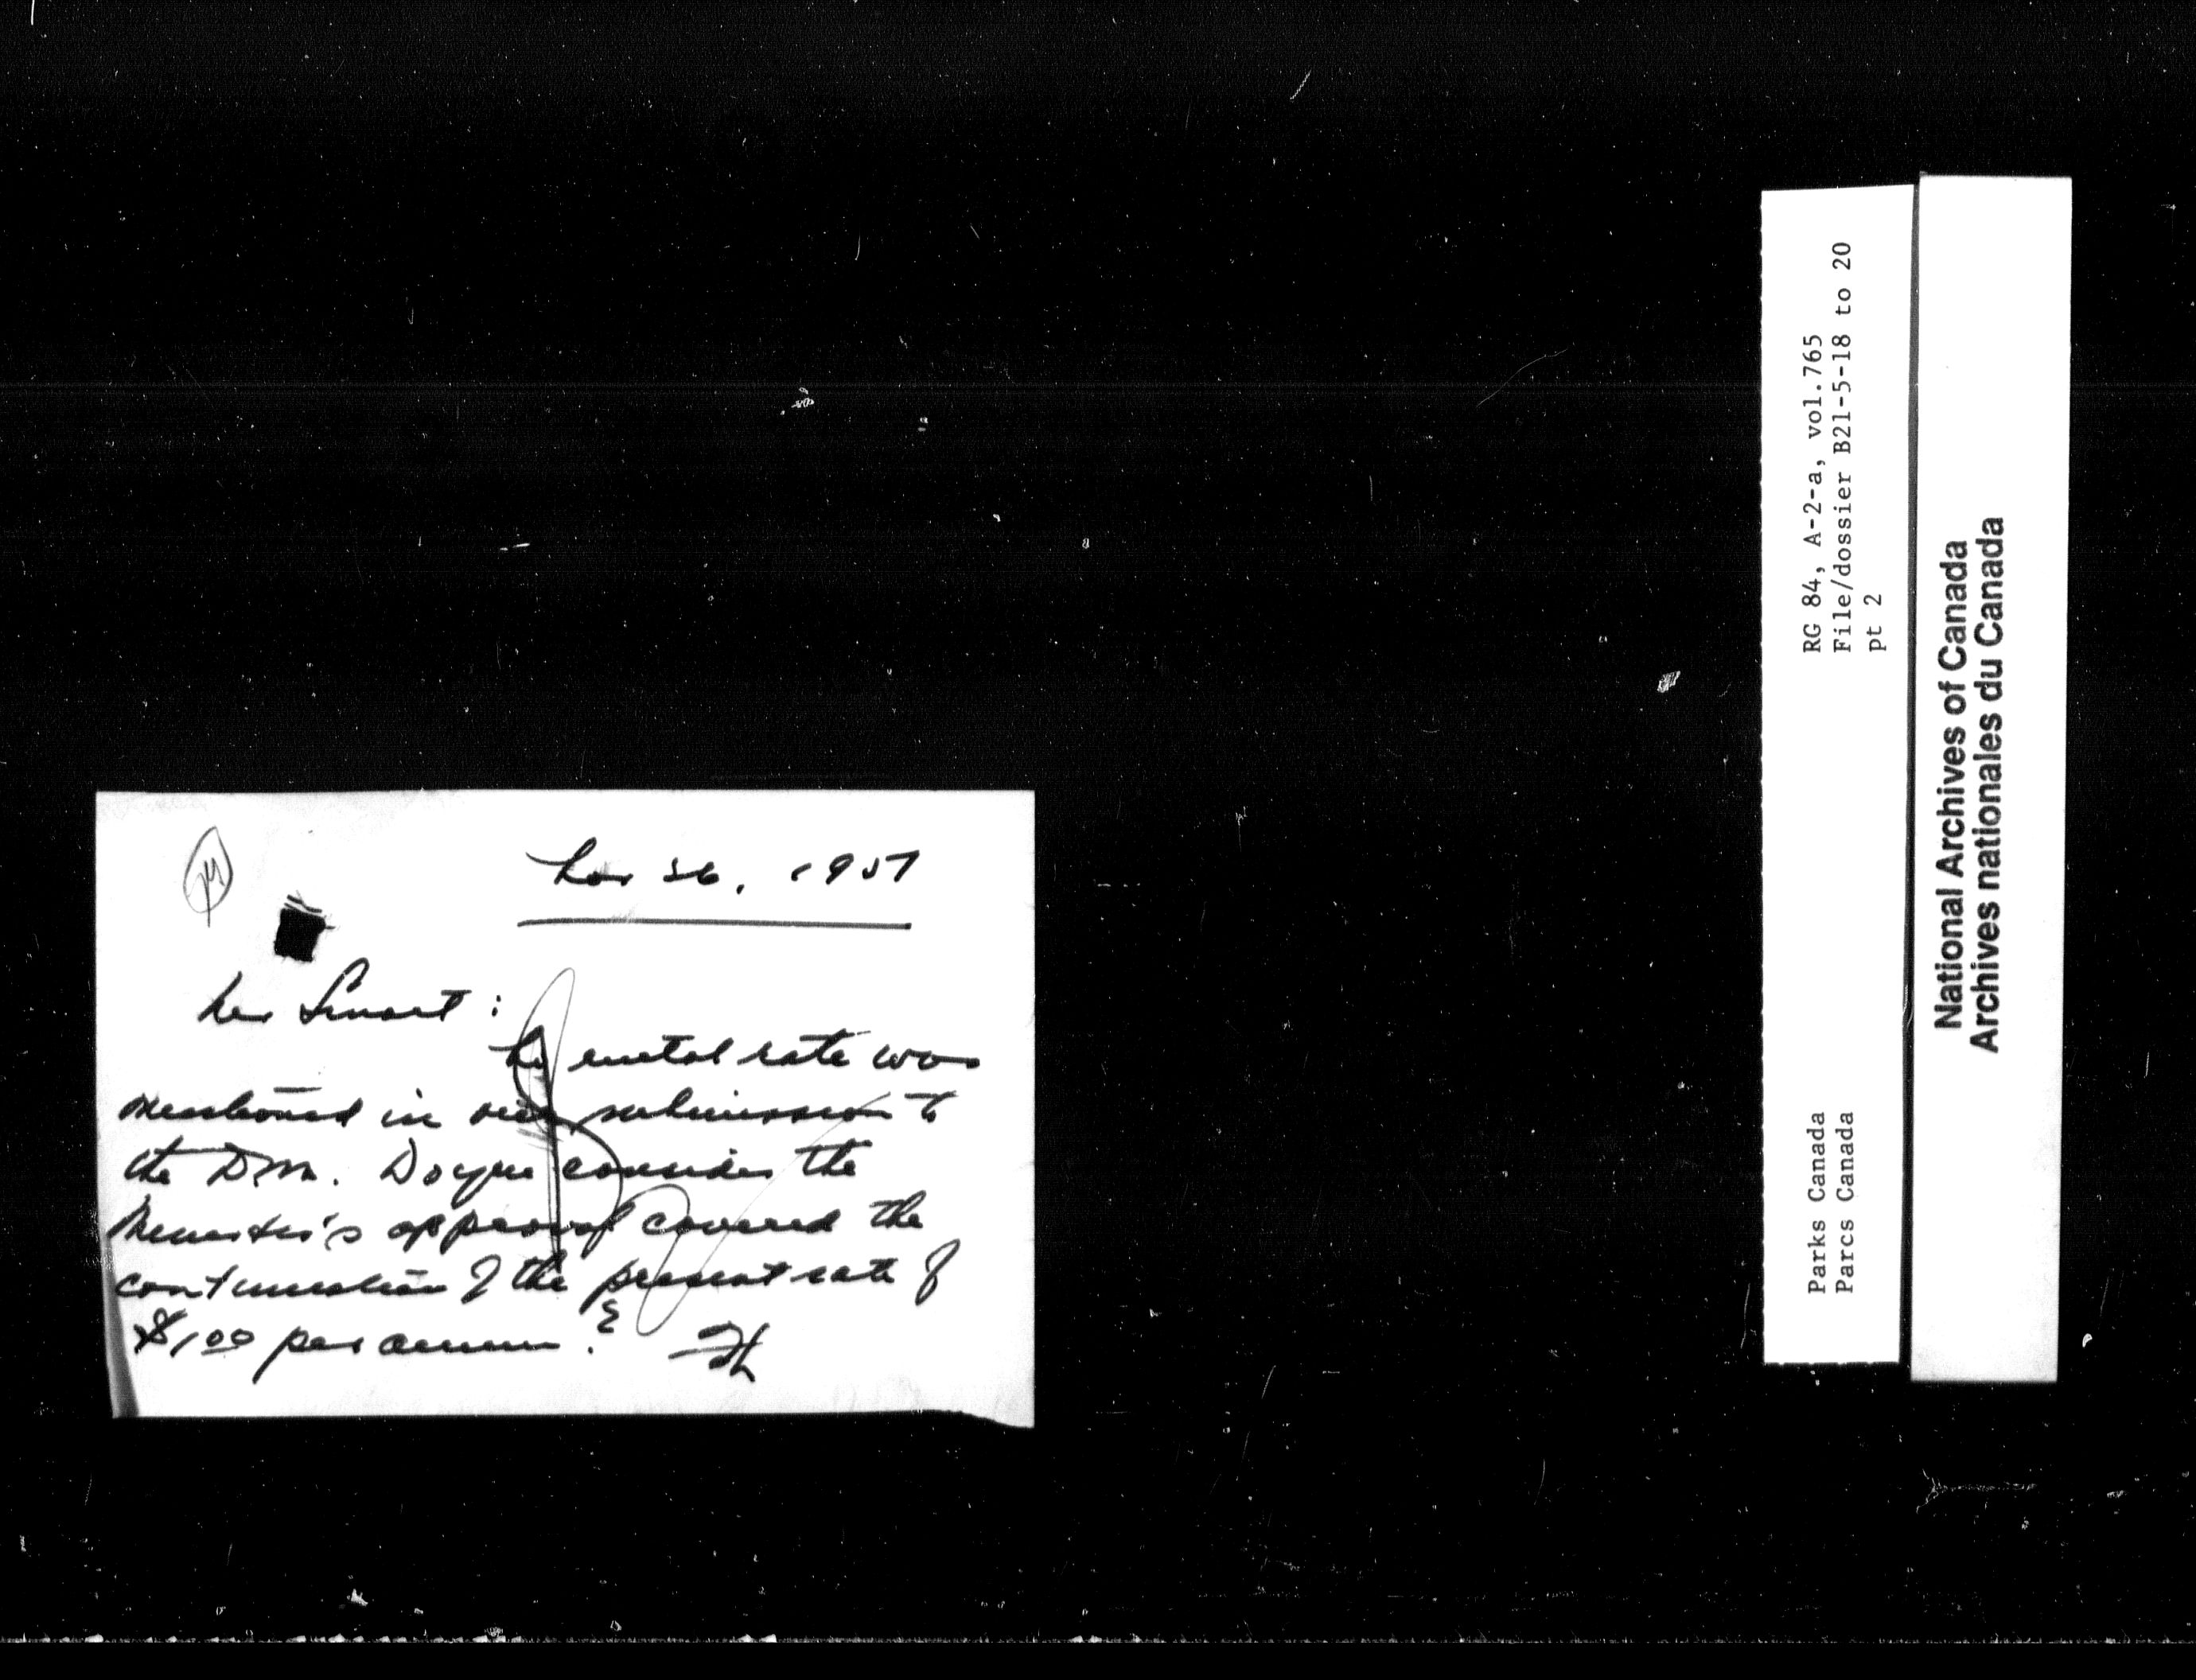 Nov 26, 1957
Mr Smart:
No rental rate was
mentioned in our submission to
the D.M. Do you consider the
Minister's approval covered the
continuation of the present rate of
$1.00 per annum?
RG 84, A-2-a, vol.765
File/dossier B21-5-18 to 20
pt 2
Parks Canada
Parcs Canada
National Archives of Canada
Archives nationales du Canada